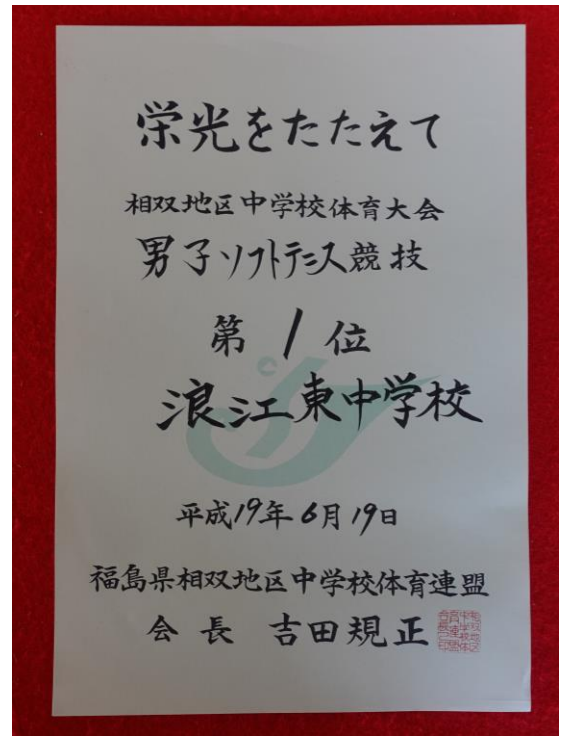 栄光をたたえて
相双地区中学校体育大会
男子ソフトテニス競技
第1位
浪江東中学校
平成19年6月19日
福島県相双地区中学校体育連盟
会長 吉田規正